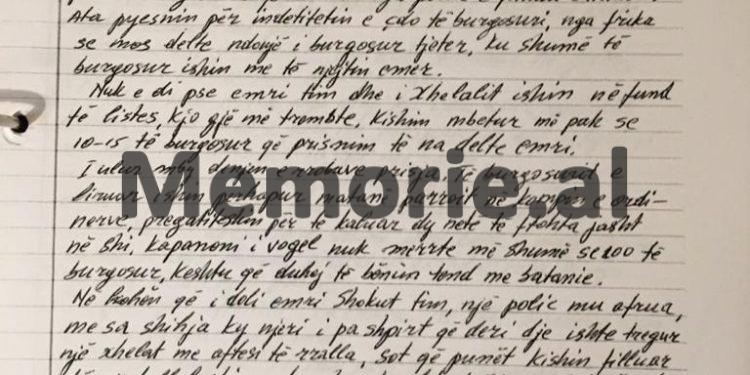 Ata pyesnin për indetitetin e çdo të burgosuri, nga frika
se mos delte ndonjë i burgosur tjeter, ku shumë të
burgosur ishin me të njejtin emer.
Nuk e di pse emri tim dhe i Xhelalit ishin në fund
të listes, kjo gjë më trembte, kishim mbetur më pak se
10-15 të burgosur që prisnim të na delte emri.
I ulur mby denjin e rrobave prisja. Të burgosurit e
liruar ishin përhapur matanë purroit në kampin e ordi-
nerve, pregatiteshin për të kaluar dy netë të ftohta jasht
në shi, kapanoni i vogel nuk merrte më shumë se 200 të
burgosur, keshtu që duhej të bënin tend me batanie.
Në kohën që i doli emri shokut tim, një polic mu afrua,
me sa shihja ky njeri i pashpirt që deri dje ishte tregur
një xhelat me aftesi të rralla, sot që punët kishin filluar
Memorie.al